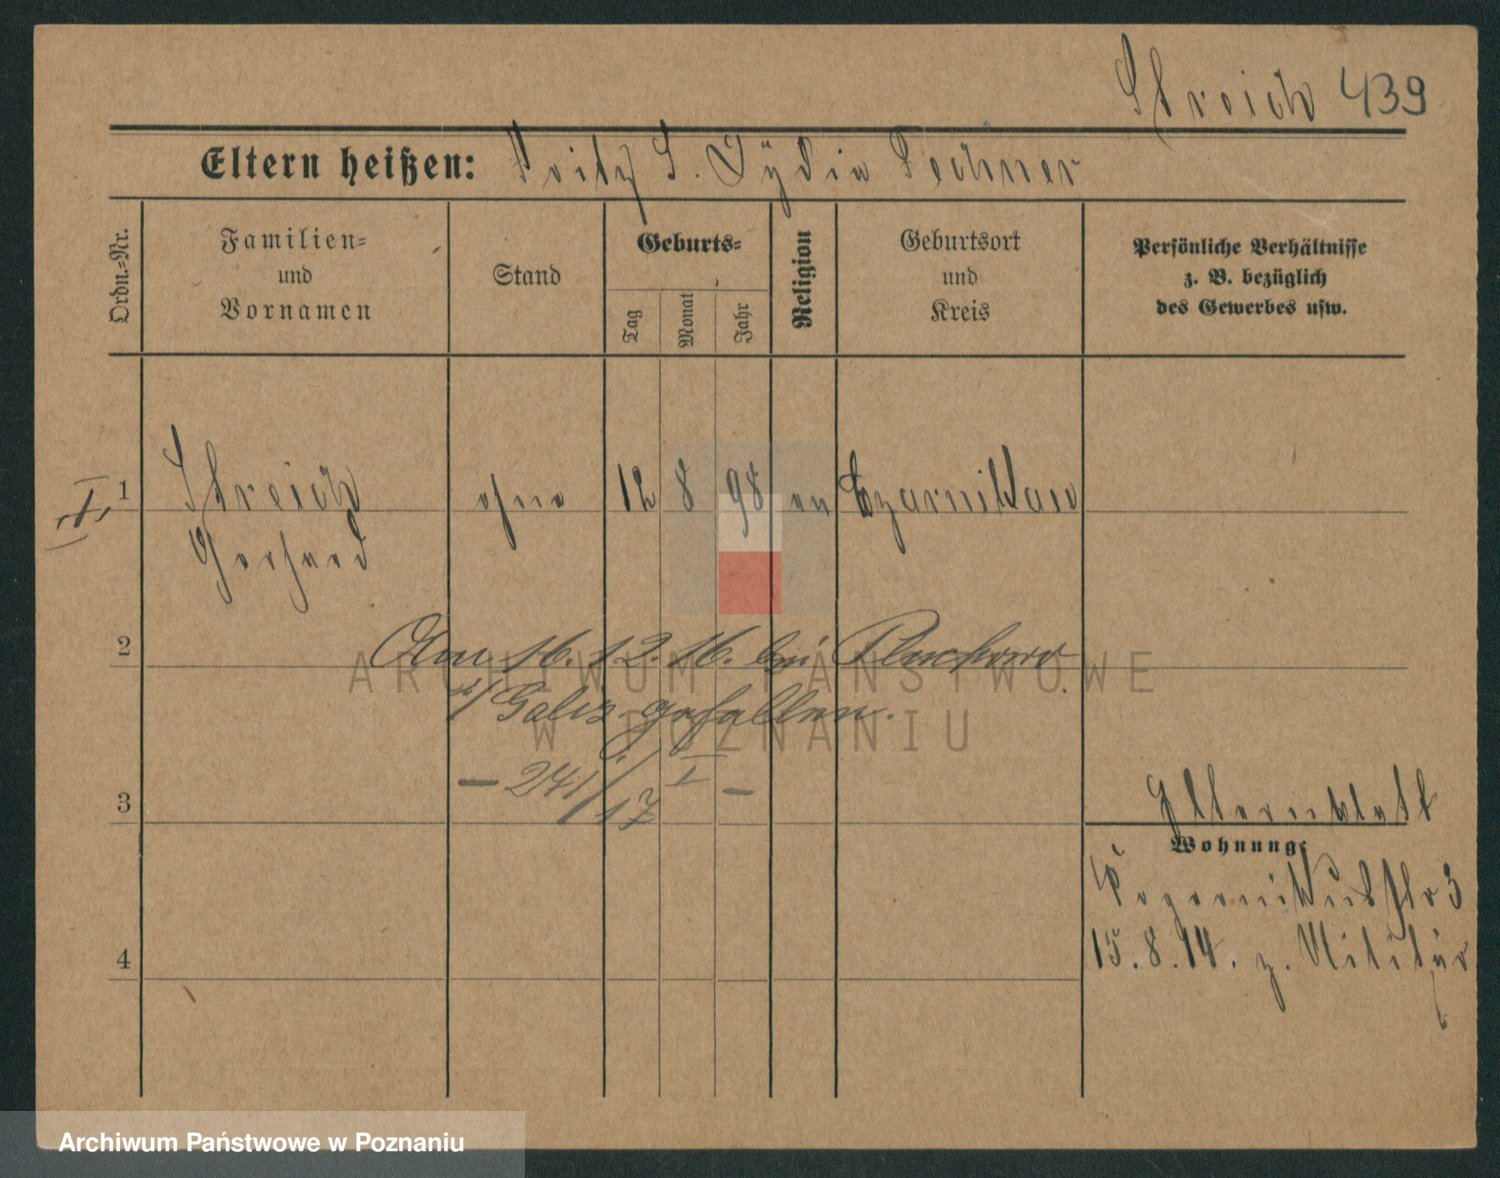 Streich 439
Eltern heißen: Fritz S. Lydia Lechner
Ordn.-Nr.
Familien-
und
Vornamen
Stand
Geburts-
Tag
Monat
Jahr
Religion
Geburtsort
und
Kreis
Persönliche Verhältnisse
z. B. bezüglich
des Gewerbes usw.
I
1 Streich ohne 12 8 98 ev Czarnikau
Gerhard
2 Am 16.12.16. bei
i/Galiz. gefallen.
- 241/17 I -
3
Elternblatt
Wohnung:
str 3
15.8.14. z. Militär
4
ARCHIWUM PAŃSTWOWE
W POZNANIU
Archiwum Państwowe w Poznaniu